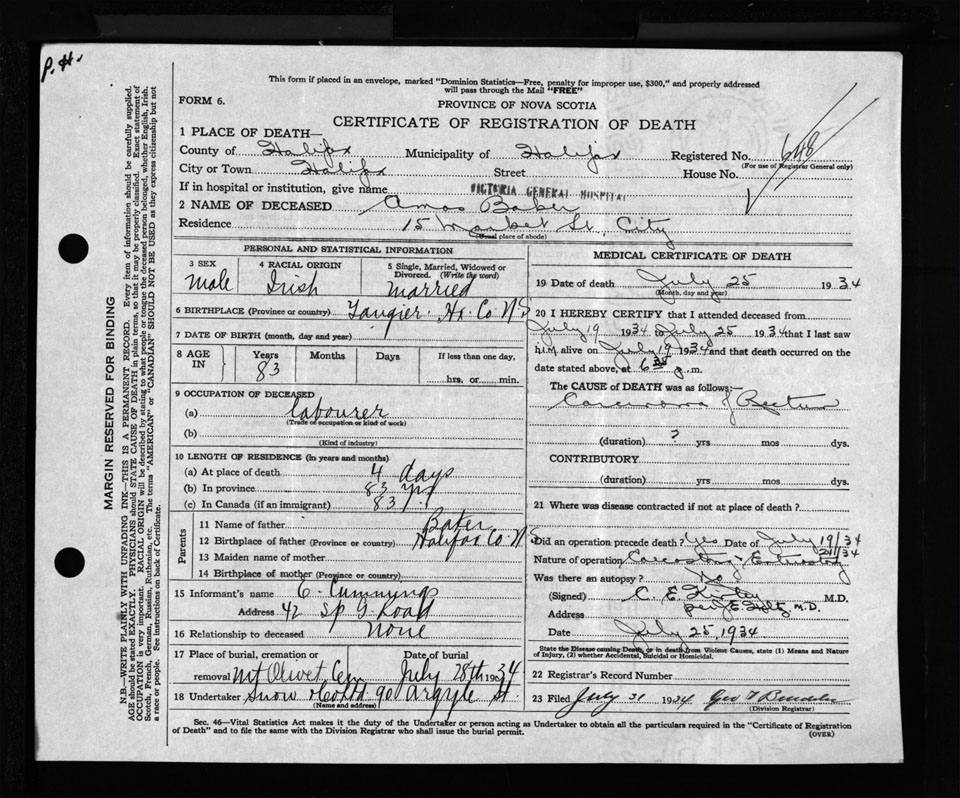 P.H.
This form if placed in an envelope, marked "Dominion Statistics—Free, penalty for improper use, $300," and properly addressed
will pass through the Mail "FREE"
FORM 6.
PROVINCE OF NOVA SCOTIA
CERTIFICATE OF REGISTRATION OF DEATH
1 PLACE OF DEATH—
County of Halifax Municipality of Halifax Registered No. 648
(For use of Registrar General only)
City or Town Halifax Street House No.
If in hospital or institution, give name VICTORIA GENERAL HOSPITAL
2 NAME OF DECEASED Amos Baker
Residence 15 Market St., City
(Usual place of abode)
PERSONAL AND STATISTICAL INFORMATION
3 SEX Male
4 RACIAL ORIGIN Irish
5 Single, Married, Widowed or Divorced. (Write the word) married
6 BIRTHPLACE (Province or country) Tangier Hx. Co. N.S
7 DATE OF BIRTH (month, day and year)
8 AGE IN Years 83 Months Days If less than one day, hrs. or min.
9 OCCUPATION OF DECEASED
(a) labourer
(Trade or occupation or kind of work)
(b)
(Kind of industry)
10 LENGTH OF RESIDENCE (in years and months)
(a) At place of death 4 days
(b) In province 83 yrs
(c) In Canada (if an immigrant) 83
Parents
11 Name of father Baker
12 Birthplace of father (Province or country) Halifax Co. N.S
13 Maiden name of mother
14 Birthplace of mother (Province or country)
15 Informant's name C. Cummings
Address 42 Sp G Road
16 Relationship to deceased none
17 Place of burial, cremation or removal Mt Olivet Cem Date of burial July 28th 1934
18 Undertaker Snow & Co Ltd 90 Argyle St.
(Name and address)
MEDICAL CERTIFICATE OF DEATH
19 Date of death July 25 1934
(Month, day and year)
20 I HEREBY CERTIFY that I attended deceased from
July 19 1934 to July 25 1934 that I last saw
him alive on July 19 1934 and that death occurred on the
date stated above, at 6 .m.
The CAUSE of DEATH was as follows:—
Carcinoma of Rectum
(duration) ? yrs mos dys.
CONTRIBUTORY
(duration) yrs mos dys.
21 Where was disease contracted if not at place of death?
Did an operation precede death? Yes Date of July 19/34
21/34
Nature of operation
Was there an autopsy? No
(Signed) C. E. M.D.
Address per J. E. M.D.
Date July 25, 1934
State the Disease causing Death, or in death from Violent Causes, state (1) Means and Nature
of Injury, (2) whether Accidental, Suicidal or Homicidal.
22 Registrar's Record Number
23 Filed July 31 1934 Geo
(Division Registrar)
Sec. 46—Vital Statistics Act makes it the duty of the Undertaker or person acting as Undertaker to obtain all the particulars required in the "Certificate of Registration
of Death" and to file the same with the Division Registrar who shall issue the burial permit.
(OVER)
MARGIN RESERVED FOR BINDING
N.B.—WRITE PLAINLY WITH UNFADING INK—THIS IS A PERMANENT RECORD. Every item of information should be carefully supplied.
AGE should be stated EXACTLY. PHYSICIANS should STATE CAUSE OF DEATH in plain terms, so that it may be properly classified. Exact statement of
OCCUPATION is very important. RACIAL ORIGIN will be described by stating to what people or tongue the deceased person belonged, whether English, Irish,
Scotch, French, German, Russian, Ruthenian, etc. The terms "AMERICAN" or "CANADIAN" SHOULD NOT BE USED as they express citizenship but not
a race or people. See instructions on back of Certificate.